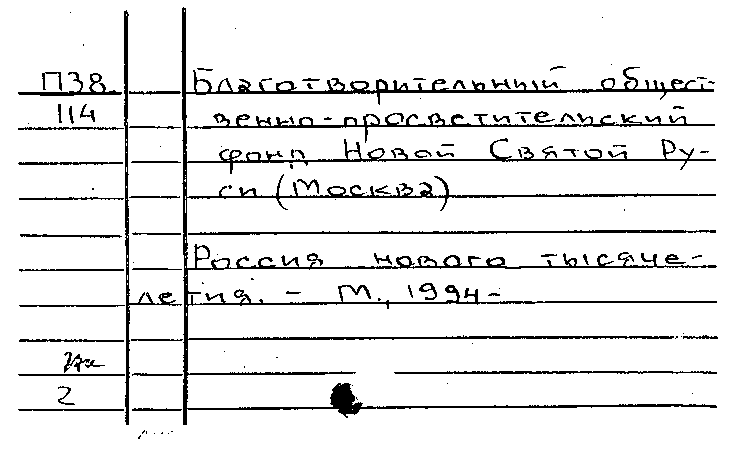 П38 Благотворительный общест-
114 венно-просветительский
фонд Новой Святой Ру-
си (Москва)
Россия нового тысяче-
летия. - М., 1994-
2